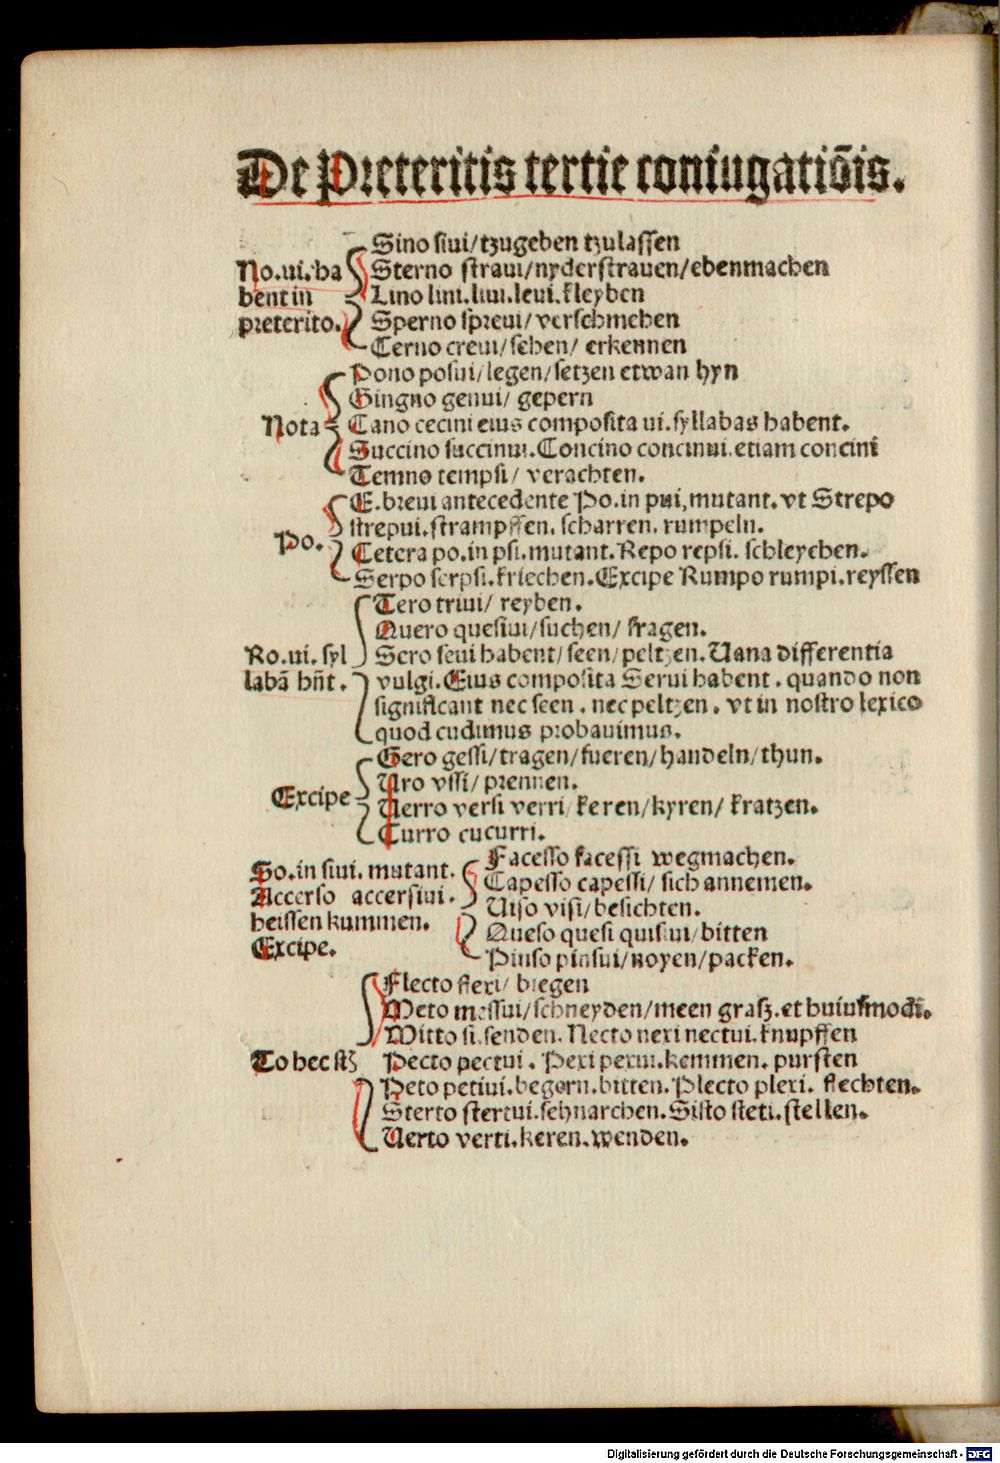 De Preteritis tertie coniugatiōis.
No.ui.ha
bent in
preterito.
Sino siui/tzugeben tzulassen
Sterno straui/nyderstrauen/ebenmachen
Lino lini.liui.leui.kleyben
Sperno spreui/verschmehen
Cerno creui/sehen/ erkennen
Nota
Pono posui/legen/setzen etwan hyn
Gingno genui/ gepern
Cano cecini eius composita ui.syllabas habent.
Succino succinui.Concino concinui.etiam concini
Temno tempsi/ verachten.
Po.
E.breui antecedente Po.in pui,mutant.vt Strepo
strepui.strampffen.scharren.rumpeln.
Cetera po.in psi.mutant.Repo repsi.schleychen.
Serpo serpsi.kriechen.Excipe Rumpo rumpi.reyssen
Ro.ui.syl
labā hn̄t.
Tero triui/ reyben.
Quero quesiui/suchen/ fragen.
Sero seui habent/seen/peltzen.Uana differentia
vulgi.Eius composita Serui habent.quando non
significant nec seen.nec peltzen.vt in nostro lexico
quod cudimus probauimus.
Excipe
Gero gessi/tragen/fueren/handeln/thun.
Uro vssi/ prennen.
Uerro versi verri/keren/kyren/ kratzen.
Curro cucurri.
So.in siui.mutant.
Accerso accersiui.
heissen kummen.
Excipe.
Facesso facessi wegmachen.
Capesso capessi/ sich annemen.
Uiso visi/besichten.
Queso quesi quisiui/bitten
Pinso pinsui/noyen/packen.
To hec stꝫ
Flecto flexi/ biegen
Meto messui/schneyden/meen grasz.et huiusmodi.
Mitto si.senden.Necto nexi nectui.knupffen
Pecto pectui.Pexi pexui.kemmen.pursten
Peto petiui.begern.bitten.Plecto plexi.flechten.
Sterto stertui.schnarchen.Sisto steti.stellen.
Uerto verti.keren.wenden.
Digitalisierung gefördert durch die Deutsche Forschungsgemeinschaft - DFG